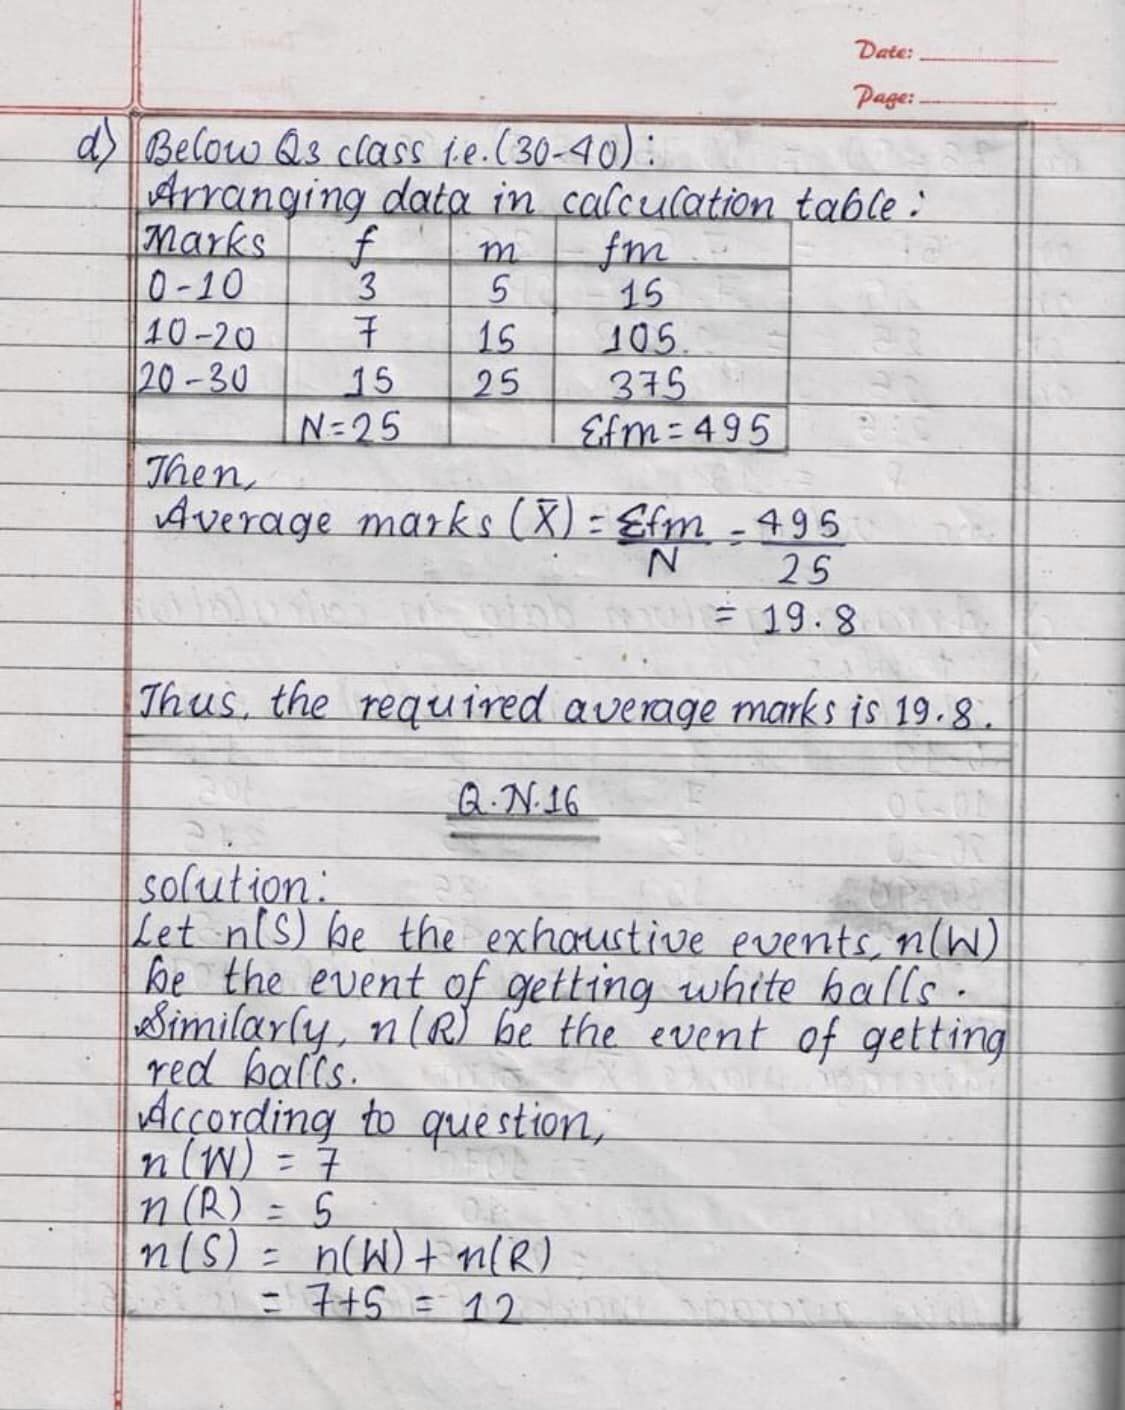 Date:
Page:
d) Below Q3 class i.e. (30-40):
Arranging data in calculation table:
Marks f m fm
0-10 3 5 15
10-20 7 15 105
20-30 15 25 375
N=25 Σfm=495
Then,
Average marks (X̄) = Σfm/N = 495/25
= 19.8
Thus, the required average marks is 19.8.
Q.N.16
solution:
Let n(S) be the exhaustive events, n(W)
be the event of getting white balls.
Similarly, n(R) be the event of getting
red balls.
According to question,
n(W) = 7
n(R) = 5
n(S) = n(W) + n(R)
= 7+5 = 12